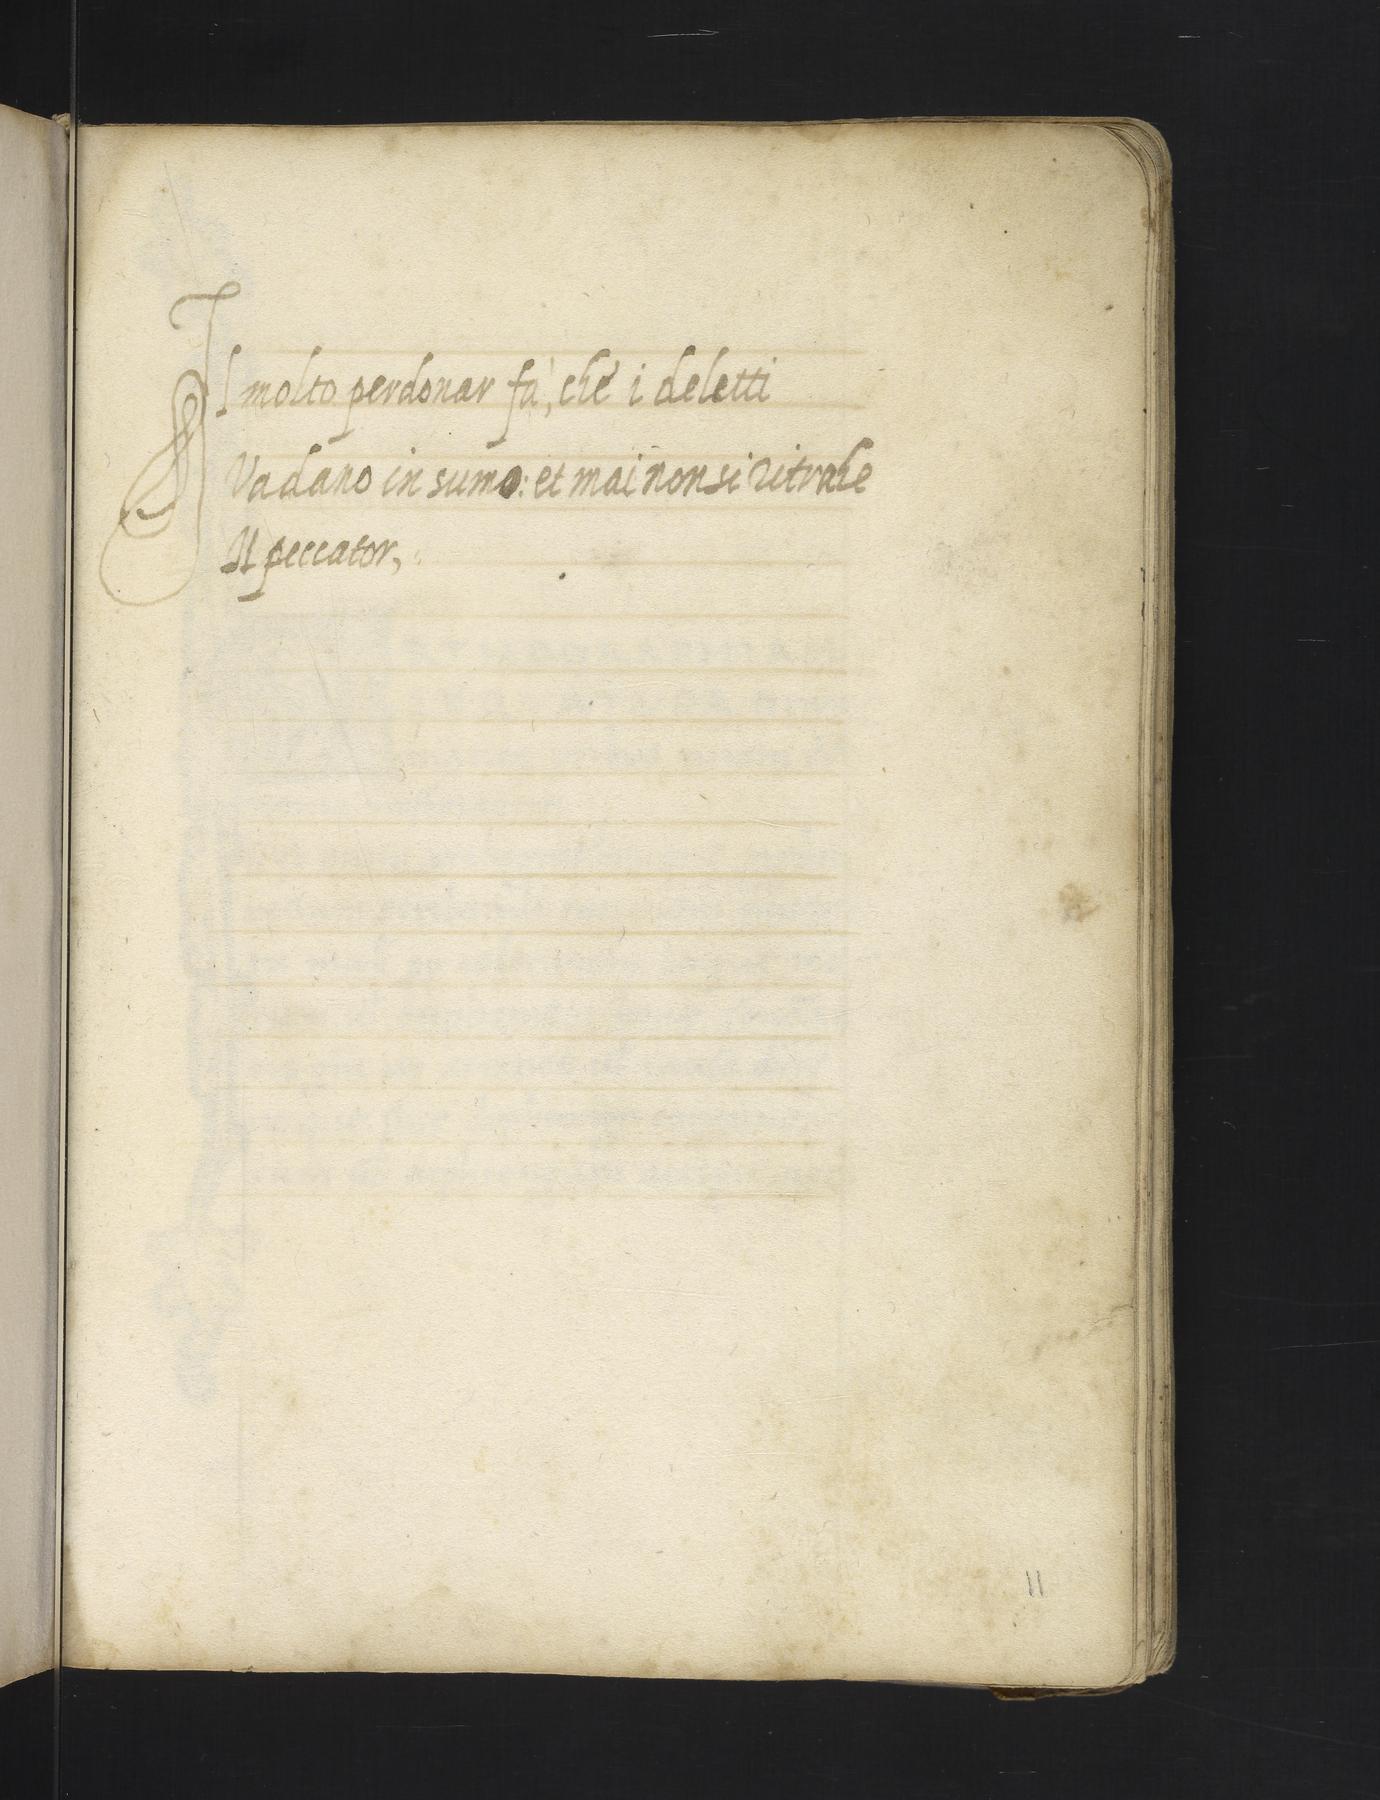 Il molto perdonar fà, chè i deletti
Vadano in sumo: et mai non si ritrahe
Il peccator,
11